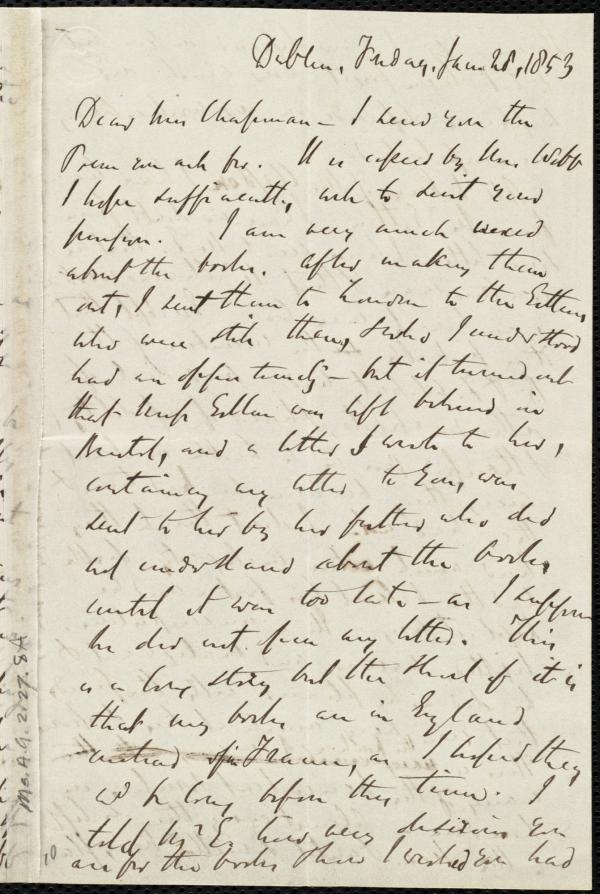 Dublin, Friday, Jan 28, 1853
Dear Mrs Chapman — I send you the
Poem you ask for. It is copied by Mrs. Webb
I hope sufficiently well to suit your
purpose. I am very much vexed
about the books. After making them
out, I sent them to London to the Estlins,
who were still there, & who I understood
had an opportunity — but it turned out
that Miss Estlin was left behind in
Bristol, and a letter I wrote to her,
containing my letter to you, was
sent to her by her father who did
not understand about the books,
until it was too late — as I suppose
he did not see my letter. This
is a long story but the short of it is
that my books are in England
instead of in France, as I hoped they
wd be long before this time. I
told Mr E. how very desirous you
are for the books & how I wished you had
MsA9.2.27.8A
10